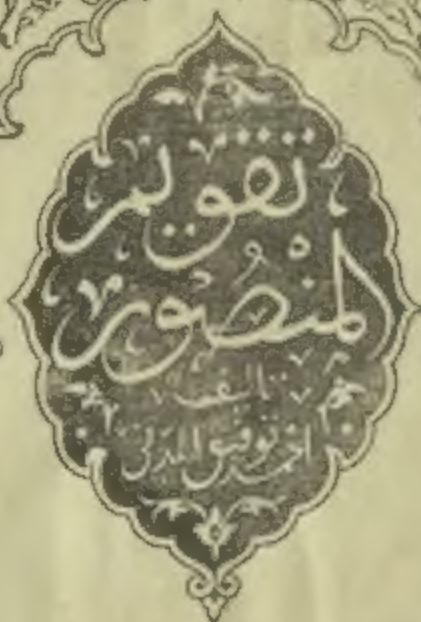 تقويم
المنصور
تأليف
احمد توفيق المدني